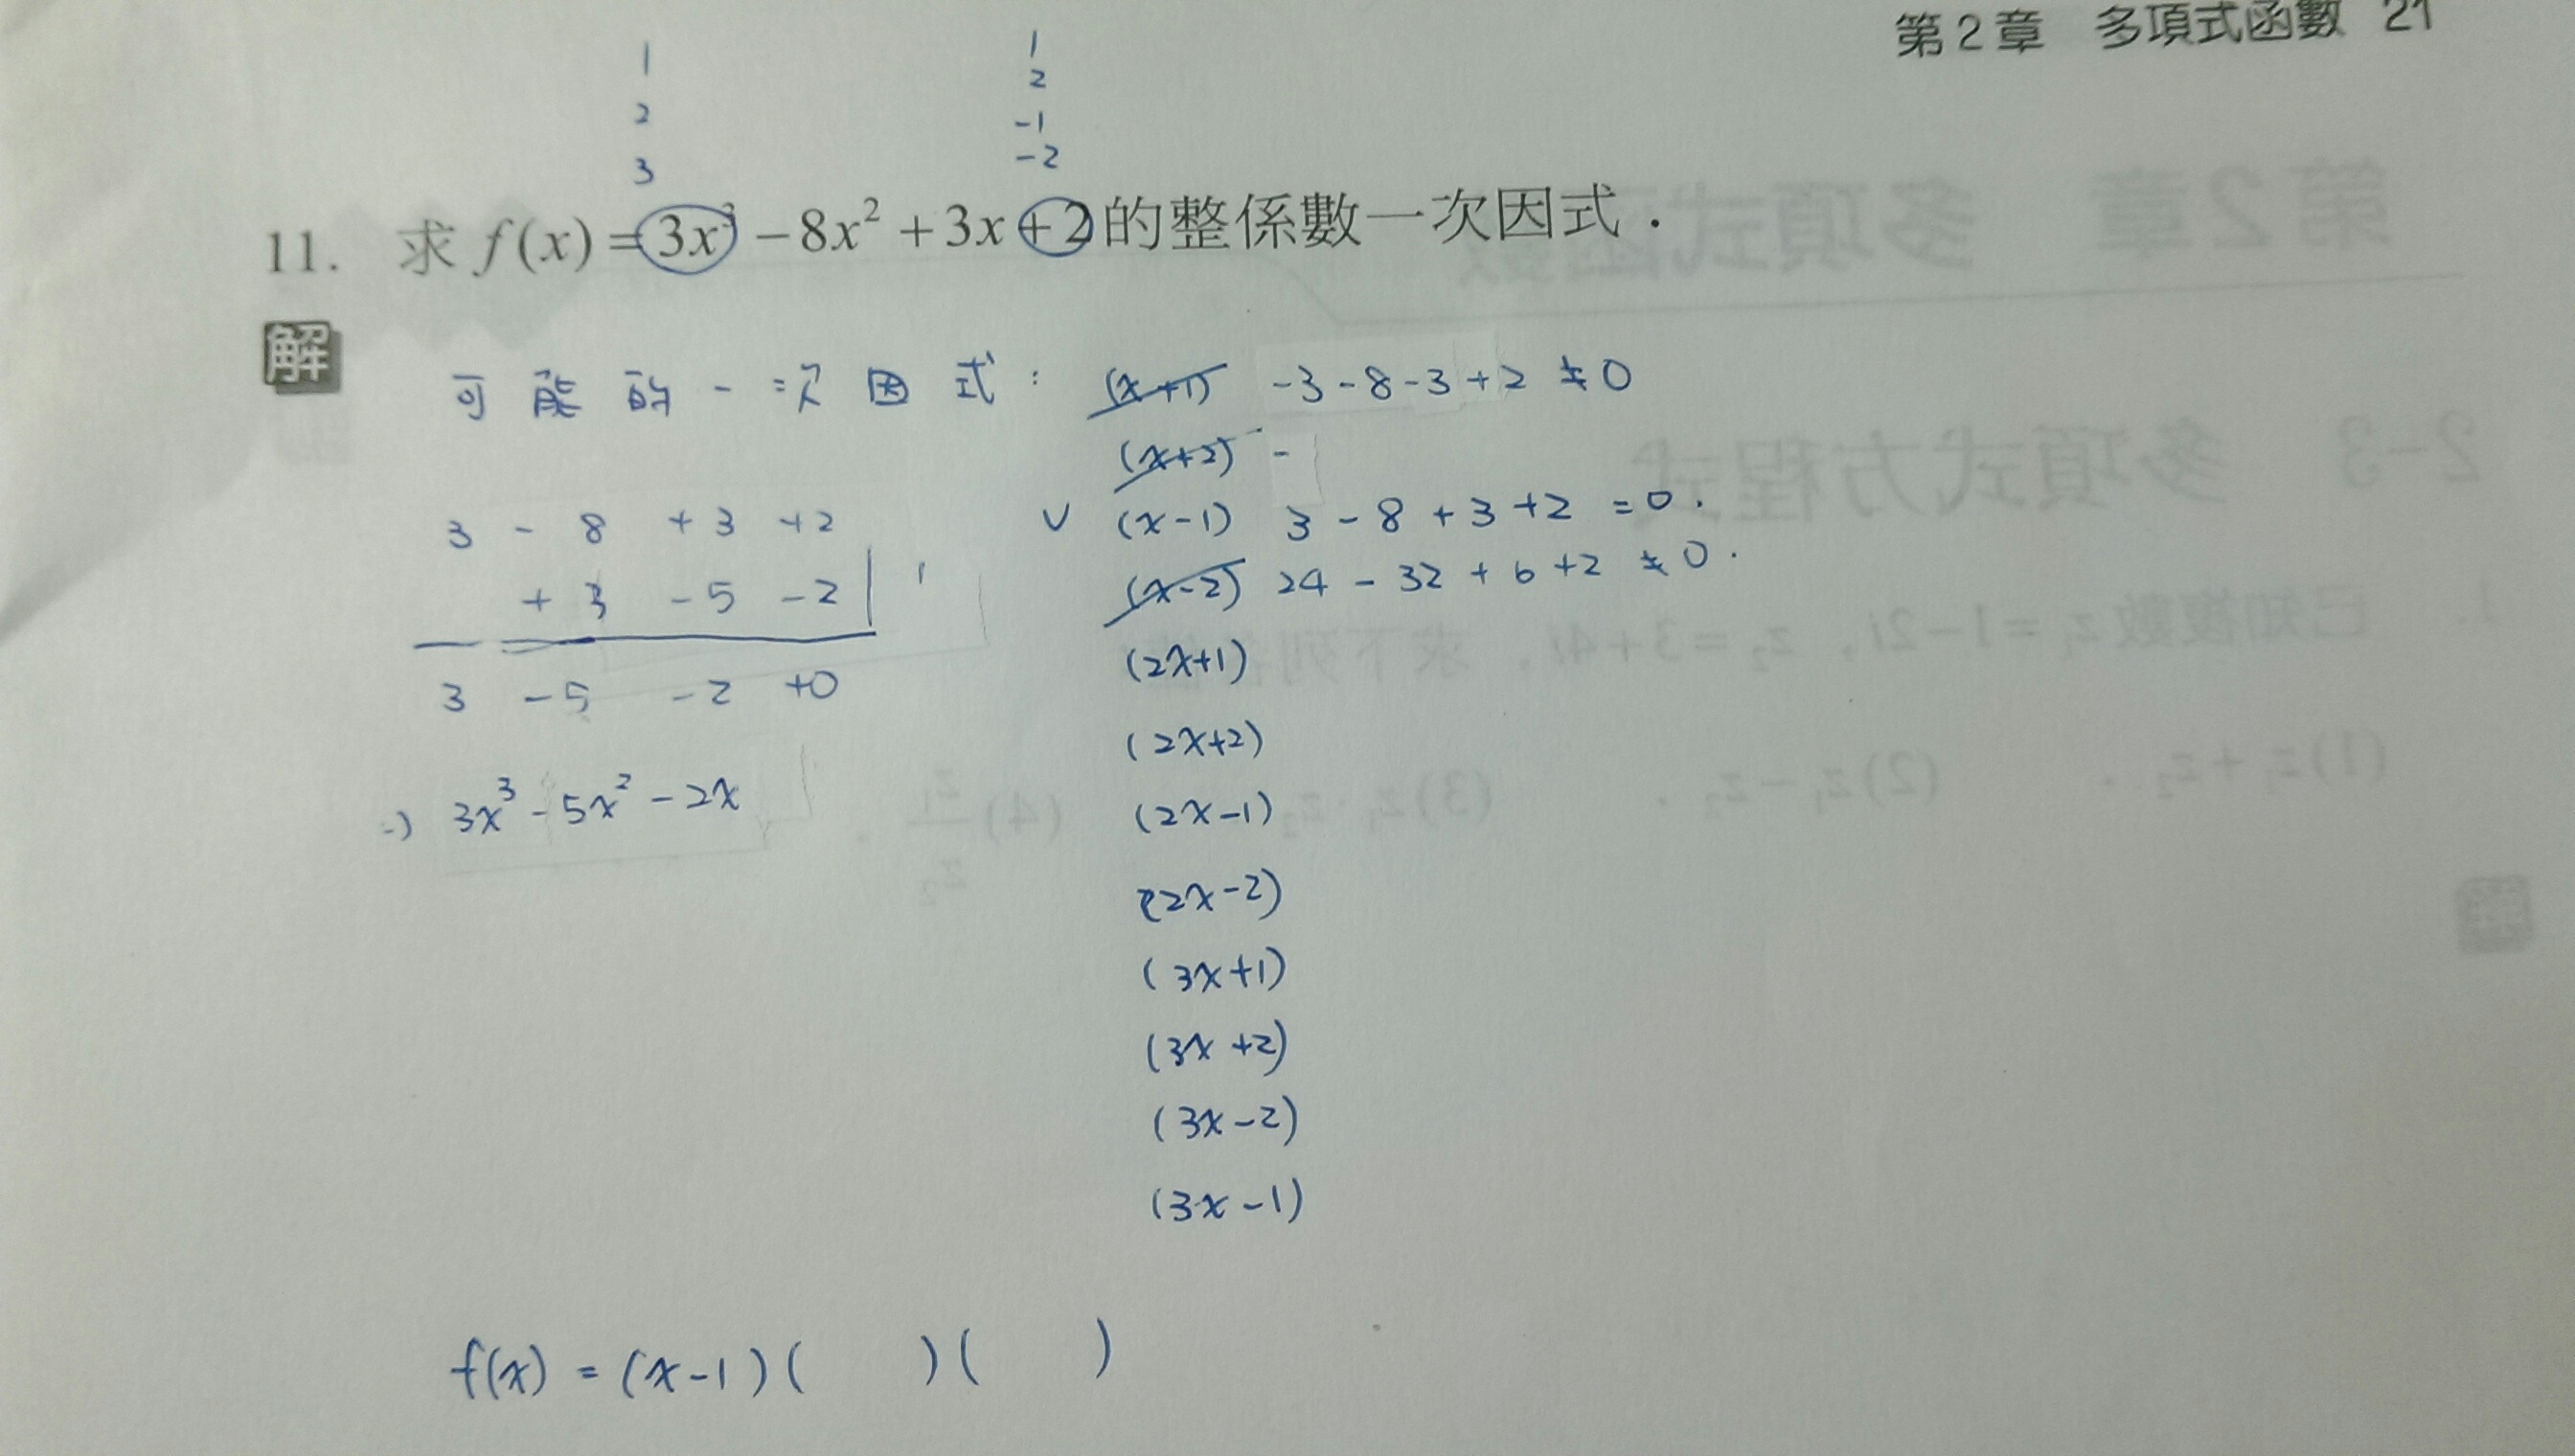 第2章 多項式函數 21
1 1
2 2
3 -1
-2
11. 求 f(x)=3x³-8x²+3x+2的整係數一次因式.
解
可能的一次因式: (x+1) -3-8-3+2≠0
(x+2) -
3 -8 +3 +2
∨ (x-1) 3-8+3+2=0.
+3 -5 -2 1
(x-2) 24-32+6+2≠0.
(2x+1)
3 -5 -2 +0
(2x+2)
3x³-5x²-2x
(2x-1)
(2x-2)
(3x+1)
(3x+2)
(3x-2)
(3x-1)
f(x)=(x-1)( )( )